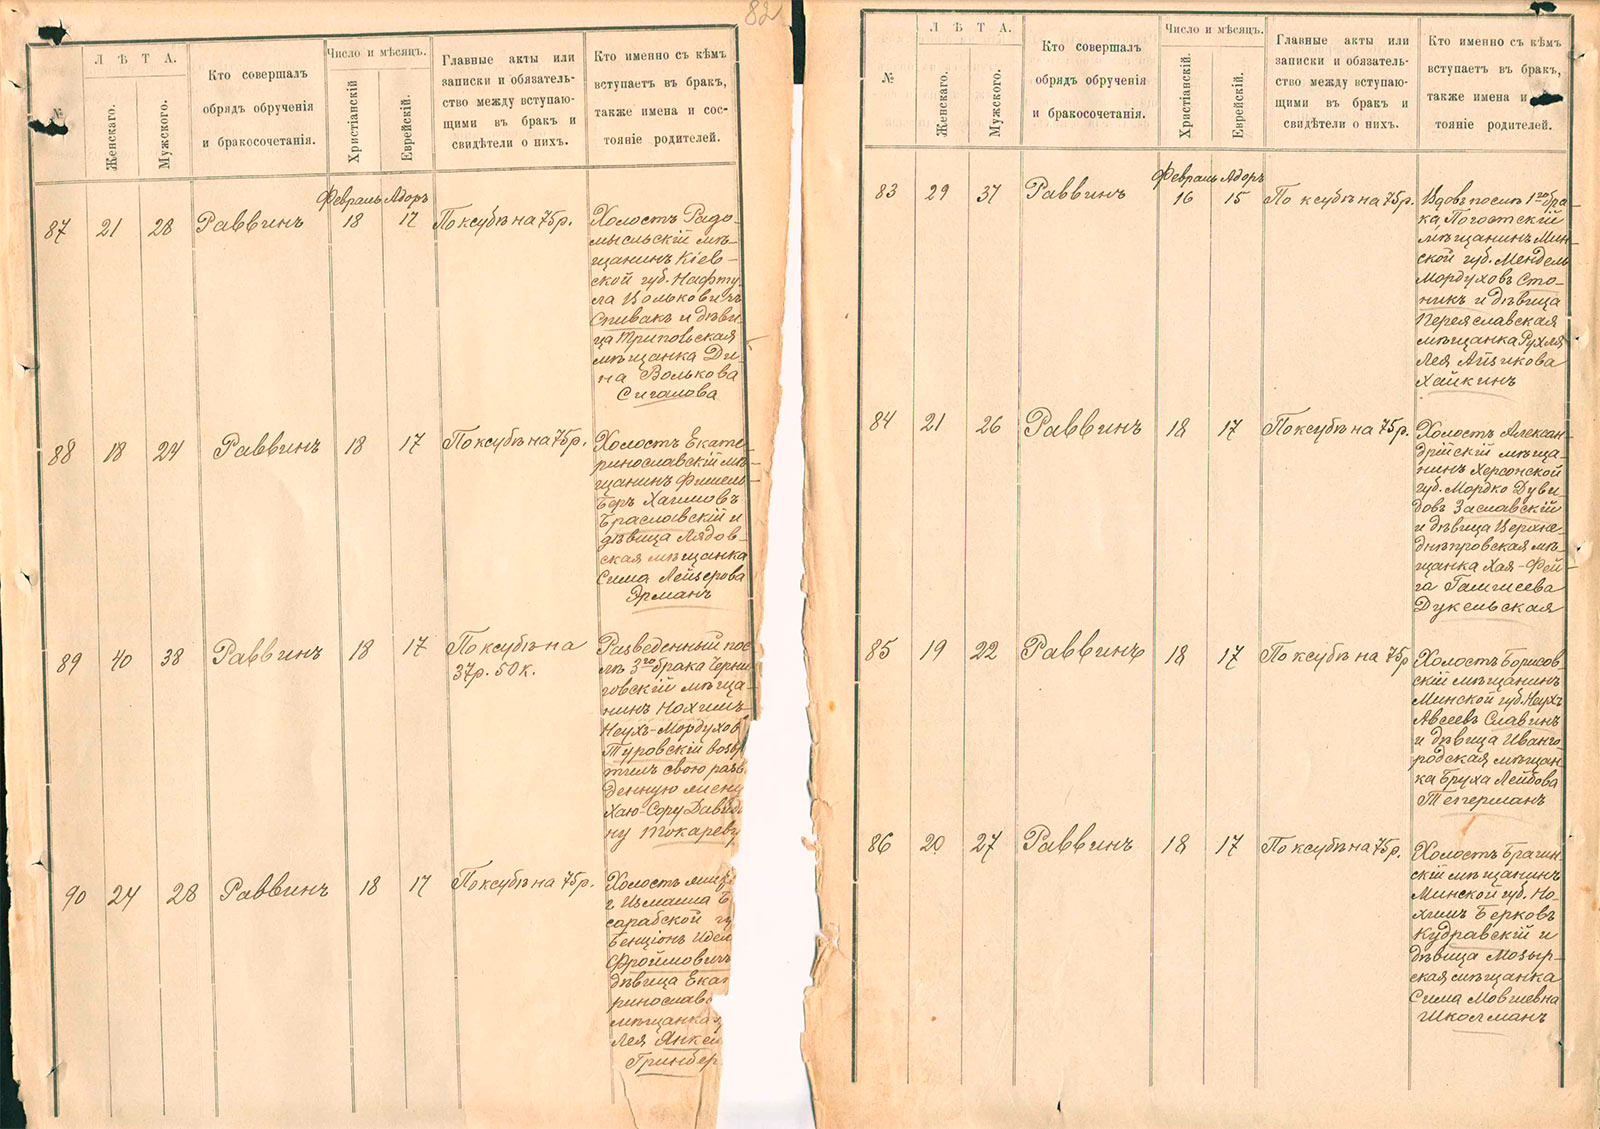 82
№
ЛѢТА.
Женскаго.
Мужского.
Кто совершалъ
обрядъ обрученія
и бракосочетанія.
Число и мѣсяцъ.
Христіанскій
Еврейскій.
Главные акты или
записки и обязатель-
ство между вступаю-
щими въ бракъ и
свидѣтели о нихъ.
Кто именно съ кѣмъ
вступаетъ въ бракъ,
также имена и сос-
тояніе родителей.
Февраль Адоръ
87 21 28 Раввинъ 18 17 По ксубѣ на 75 р.
Холостъ Радо-
мысльскій мѣ-
щанинъ Кіев-
ской губ. Нафту-
ла Цольковичъ
Спивакъ и дѣви-
ца Трипольская
мѣщанка Ди-
на Волькова
Сигалова
88 18 24 Раввинъ 18 17 По ксубѣ на 75 р.
Холостъ Екате-
ринославскій мѣ-
щанинъ Фишель-
Беръ Хаимовъ
Браславскій и
дѣвица Лядов-
ская мѣщанка
Сима Лейзерова
Эрманъ
89 40 38 Раввинъ 18 17 По ксубѣ на
37 р. 50 к.
Разведенный пос-
лѣ 3го брака Черни-
говскій мѣща-
нинъ Нохимъ-
Неухъ-Мордухов
Туровскій возвр
тилъ свою разв
денную жену
Хаю-Сору Давидо
ну Токареву
90 24 28 Раввинъ 18 17 По ксубѣ на 75 р.
Холостъ мищ
г. Измаила Б
сарабской гу
Бенціонъ Идел
Фроймовичъ
дѣвица Екат
ринослав
мѣщанка
Лея Янкел
Гринбер
№
ЛѢТА.
Женскаго.
Мужского.
Кто совершалъ
обрядъ обрученія
и бракосочетанія.
Число и мѣсяцъ.
Христіанскій.
Еврейскій.
Главные акты или
записки и обязатель-
ство между вступаю-
щими въ бракъ и
свидѣтели о нихъ.
Кто именно съ кѣмъ
вступаетъ въ бракъ,
также имена и
тояніе родителей.
Февраль Адоръ
83 29 37 Раввинъ 16 15 По ксубѣ на 75 р.
Вдовъ послѣ 1го бра-
ка Погостскій
мѣщанинъ Мин-
ской губ. Мендель
Мордуховъ Сто-
никъ и дѣвица
Переяславская
мѣщанка Рухля
Лея Айзикова
Хайкинъ
84 21 26 Раввинъ 18 17 По ксубѣ на 75 р.
Холостъ Алексан-
дрійскій мѣща-
нинъ Херсонской
губ. Мордко Дуви-
довъ Заславскій
и дѣвица Верхне-
днѣпровская мѣ-
щанка Хая-Фей-
га Гамшеева
Дукельская
85 19 22 Раввинъ 18 17 По ксубѣ на 75 р
Холостъ Борисов-
скій мѣщанинъ
Минской губ. Неухъ
Авсеевъ Славинъ
и дѣвица Иванго-
родская мѣщан-
ка Бруха Лейбова
Теперманъ
86 20 27 Раввинъ 18 17 По ксубѣ на 75 р.
Холостъ Брагин-
скій мѣщанинъ
Минской губ. Но-
химъ Берковъ
Кудравскій и
дѣвица Мозыр-
ская мѣщанка
Сима Мовшевна
Школманъ